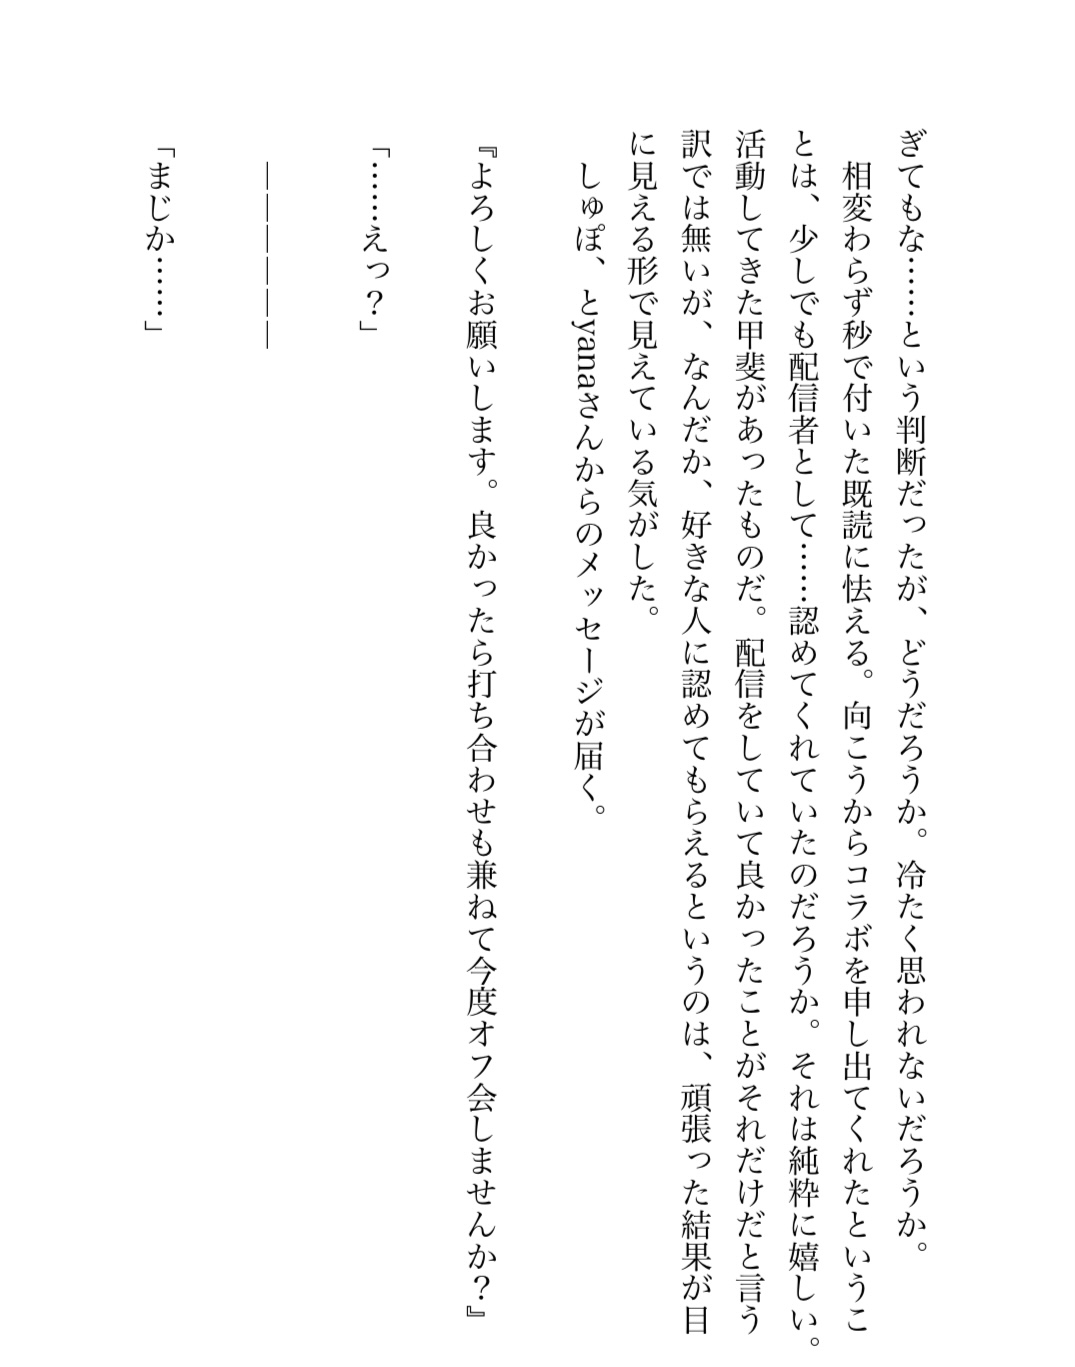 ぎてもな……という判断だったが、どうだろうか。冷たく思われないだろうか。
　相変わらず秒で付いた既読に怯える。向こうからコラボを申し出てくれたというこ
とは、少しでも配信者として……認めてくれていたのだろうか。それは純粋に嬉しい。
活動してきた甲斐があったものだ。配信をしていて良かったことがそれだけだと言う
訳では無いが、なんだか、好きな人に認めてもらえるというのは、頑張った結果が目
に見える形で見えている気がした。
　しゅぽ、とyanaさんからのメッセージが届く。
『よろしくお願いします。良かったら打ち合わせも兼ねて今度オフ会しませんか？』
「……えっ？」
　――――――
「まじか……」